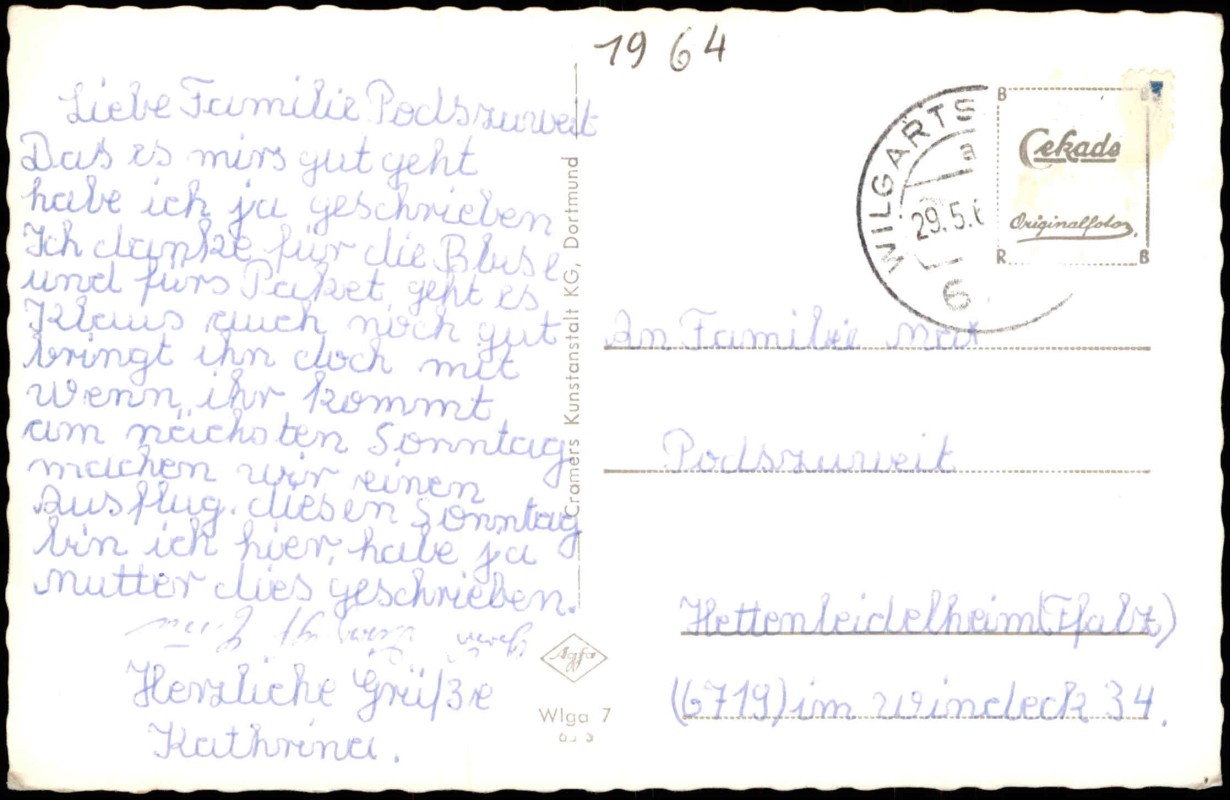 1964
Liebe Familie Podszuweit
Das es mirs gut geht
habe ich ja geschrieben
Ich danke für die Bluse
und fürs Paket, geht es
Klaus auch noch gut
bringt ihn doch mit
Wenn ihr kommt
am nächsten Sonntag
machen wir einen
Ausflug. diesen Sonntag
bin ich hier, habe ja
Mutter dies geschrieben.
Herzliche Grüße
Kathrina.
Cramers Kunstanstalt KG, Dortmund
Agfa
Wlga 7
WILGARTS
a
29.5.6
6
B
Cekade
Originalfoto
R B
An Familie
Podszuweit
Hettenleidelheim (Pfalz)
(6719) im Windeck 34.